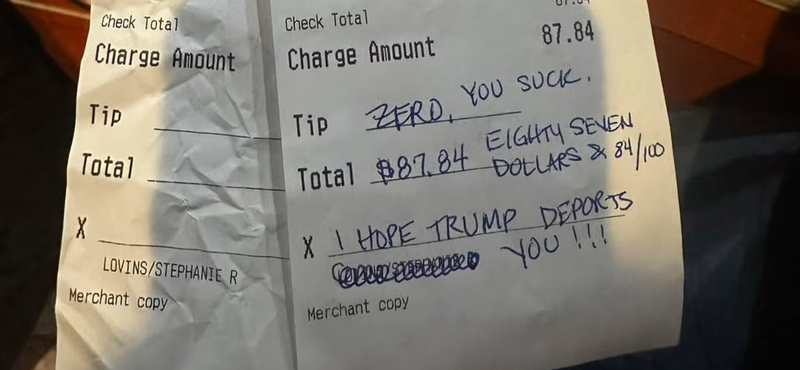 Check Total
Charge Amount
Tip
Total
X
LOVINS/STEPHANIE R
Merchant copy
Check Total
Charge Amount 87.84
Tip ZERO, YOU SUCK.
Total $87.84 EIGHTY SEVEN
DOLLARS & 84/100
X I HOPE TRUMP DEPORTS
YOU!!!
Merchant copy